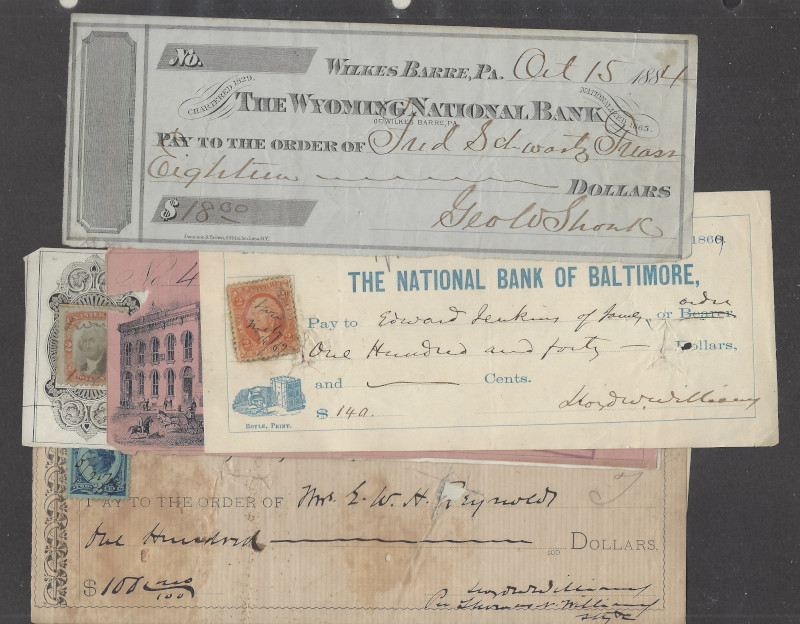 No.
WILKES BARRE, PA. Oct 15 1884
CHARTERED 1829.
THE WYOMING NATIONAL BANK
NATIONAL 1865.
OF WILKES BARRE, PA.
PAY TO THE ORDER OF Fred Schwartz Treasr
Eighteen DOLLARS
$ 18.00
Geo W Shonk
No. 4
1869.
THE NATIONAL BANK OF BALTIMORE,
Pay to Edward Jenkins of or Bearer, order
One Hundred and forty Dollars,
and Cents.
$ 140.
Lloyd W. Williams
BOYLE, PRINT.
PAY TO THE ORDER OF Mrs E. W. H. Reynolds
One Hundred DOLLARS.
$ 100 no/100
Lloyd W Williams
Per Thomas N. Williams